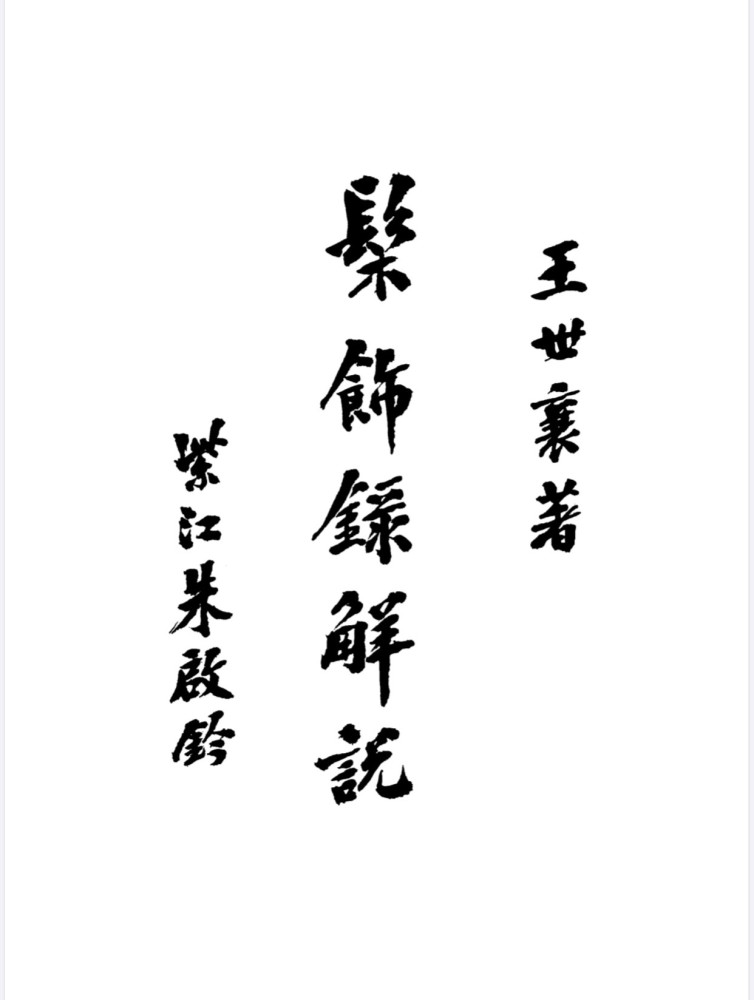 王世襄著
髹飾錄解說
紫江朱啟鈐